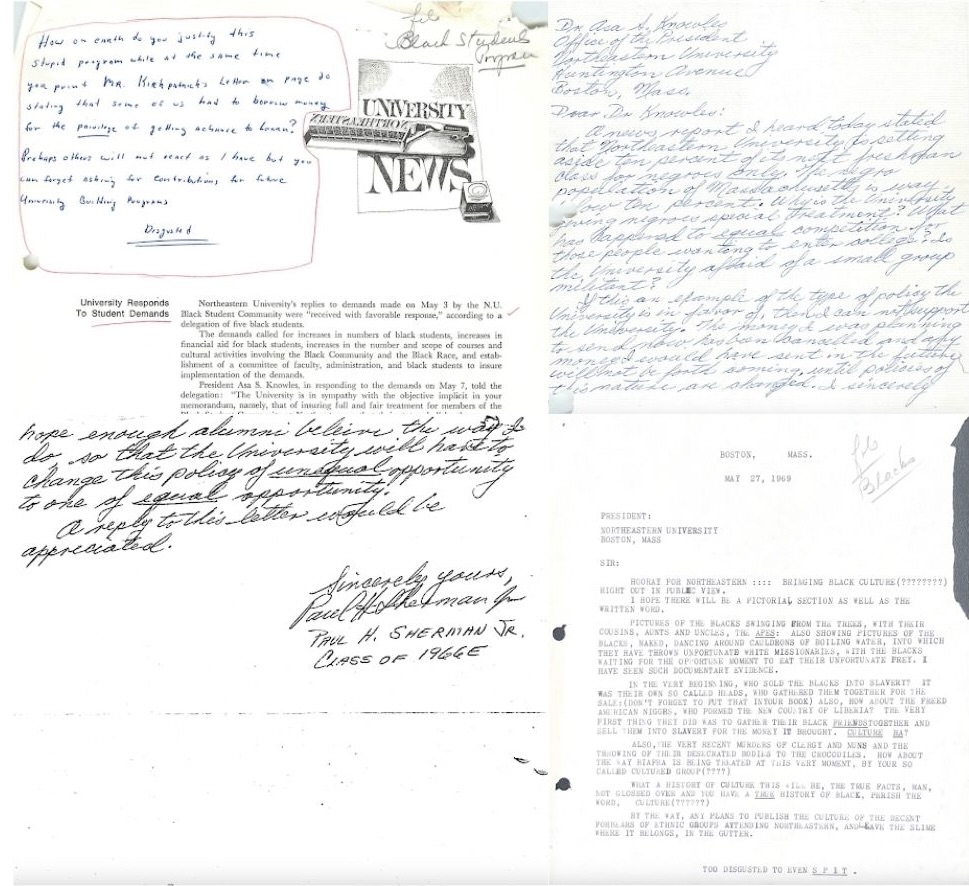 How on earth do you justify this
stupid program while at the same time
you print Mr. Kirkpatrick's Letter on page 20
stating that some of us had to borrow money
for the privilege of getting a chance to learn?
Prehaps others will not react as I have but you
can forget asking for contributions for future
University Building Programs
Disgusted
file
Black Students
Program
UNIVERSITY
NORTHEASTERN
NEWS
University Responds
To Student Demands
Northeastern University's replies to demands made on May 3 by the N.U.
Black Student Community were "received with favorable response," according to a
delegation of five black students.
The demands called for increases in numbers of black students, increases in
financial aid for black students, increases in the number and scope of courses and
cultural activities involving the Black Community and the Black Race, and estab-
lishment of a committee of faculty, administration, and black students to insure
implementation of the demands.
President Asa S. Knowles, in responding to the demands on May 7, told the
delegation: "The University is in sympathy with the objective implicit in your
memorandum, namely, that of insuring full and fair treatment for members of the
Dr. Asa S. Knowles
Office of the President
Northeastern University
Huntington Avenue
Boston, Mass.
Dear Dr Knowles:
A news report I heard today stated
that Northeastern University is setting
aside ten percent of its next freshman
class for negroes only. The negro
population of Massachusetts is way
below ten percent. Why is the University
giving negroes special treatment? What
has happened to equal competition for
those people wanting to enter college? Is
the University affraid of a small group
militant?
If this an example of the type of policy the
University is in favor of, then I can not support
the University. The money I was planning
to send now has been cancelled and any
money I would have sent in the future
will not be forth coming, until policies of
this nature are changed. I sincerely
hope enough alumni beleive the way I
do so that the University will have to
change this policy of unequal opportunity
to one of equal opportunity.
A reply to this letter would be
appreciated.
Sincerely yours,
Paul H. Sherman Jr
PAUL H. SHERMAN JR.
CLASS OF 1966E
file
Blacks
BOSTON, MASS.
MAY 27, 1969
PRESIDENT:
NORTHEASTERN UNIVERSITY
BOSTON, MASS
SIR:
HOORAY FOR NORTHEASTERN :::: BRINGING BLACK CULTURE(????????)
RIGHT OUT IN PUBLIC VIEW.
I HOPE THERE WILL BE A PICTORIAL SECTION AS WELL AS THE
WRITTEN WORD.
PICTURES OF THE BLACKS SWINGING FROM THE TREES, WITH THEIR
COUSINS, AUNTS AND UNCLES, THE APES: ALSO SHOWING PICTURES OF THE
BLACKS, NAKED, DANCING AROUND CAULDRONS OF BOILING WATER, INTO WHICH
THEY HAVE THROWN UNFORTUNATE WHITE MISSIONARIES, WITH THE BLACKS
WAITING FOR THE OPPORTUNE MOMENT TO EAT THEIR UNFORTUNATE PREY. I
HAVE SEEN SUCH DOCUMENTARY EVIDENCE.
IN THE VERY BEGINNING, WHO SOLD THE BLACKS INTO SLAVERY? IT
WAS THEIR OWN SO CALLED HEADS, WHO GATHERED THEM TOGETHER FOR THE
SALE:(DON'T FORGET TO PUT THAT INYOUR BOOK) ALSO, HOW ABOUT THE FREED
AMERICAN NIGGRS, WHO FORMED THE NEW COUNTRY OF LIBERIA? THE VERY
FIRST THING THEY DID WAS TO GATHER THEIR BLACK FRIENDSTOGETHER AND
SELL THEM INTO SLAVERY FOR THE MONEY IT BROUGHT. CULTURE HA?
ALSO,THE VERY RECENT MURDERS OF CLERGY AND NUNS AND THE
THROWING OF THEIR DESECRATED BODIES TO THE CROCODILES. HOW ABOUT
THE WAY BIAFRA IS BEING TREATED AT THIS VERY MOMENT, BY YOUR SO
CALLED CULTURED GROUP(????)
WHAT A HISTORY OF CULTURE THIS WILL BE, THE TRUE FACTS, MAN,
NOT GLOSSED OVER AND YOU HAVE A TRUE HISTORY OF BLACK, PERISH THE
WORD, CULTURE(??????)
BY THE WAY, ANY PLANS TO PUBLISH THE CULTURE OF THE DECENT
FORBEARS OF ETHNIC GROUPS ATTENDING NORTHEASTERN, AND LEAVE THE SLIME
WHERE IT BELONGS, IN THE GUTTER.
TOO DISGUSTED TO EVEN S P I T .